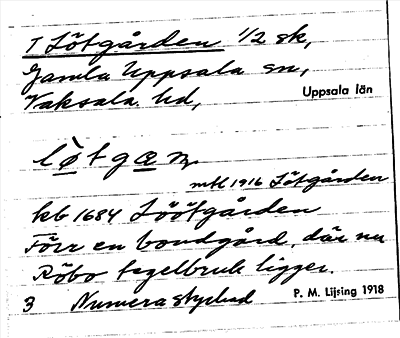 1 Sötgården 1/2 sk,
Gamla Uppsala sn,
Vaksala hd, Uppsala län
sø̀tgæɳ
mtl 1916 Sötgården
kb 1684 Söötgården
Förr en bondgård, där nu
Röbo tegelbruk ligger.
3 Numera styckad P. M. Lijsing 1918